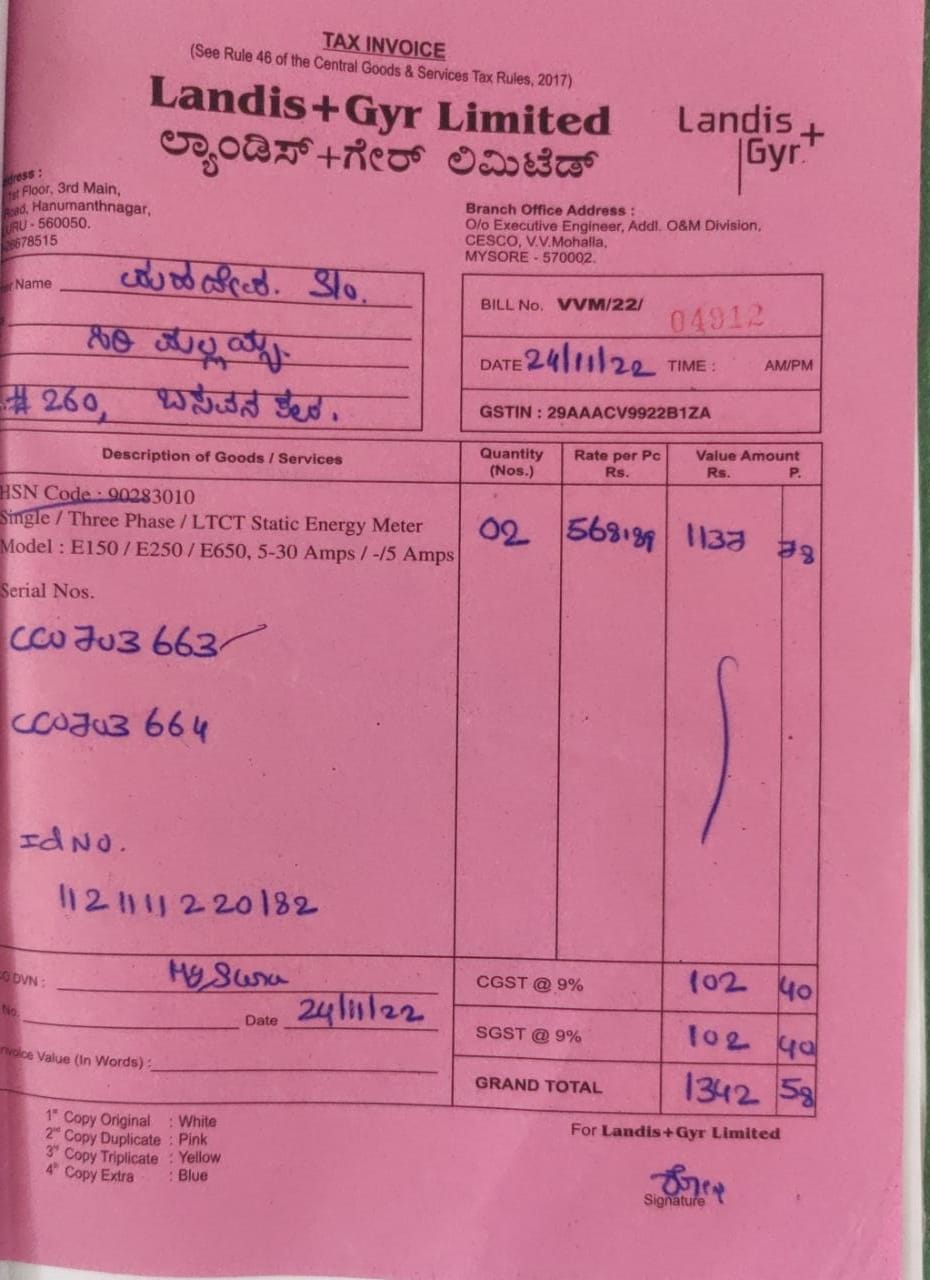 TAX INVOICE
(See Rule 46 of the Central Goods & Services Tax Rules, 2017)
Landis+Gyr Limited
ಲ್ಯಾಂಡಿಸ್+ಗೇರ್ ಲಿಮಿಟೆಡ್
Landis
Gyr+
dress :
1st Floor, 3rd Main,
Road, Hanumanthnagar,
URU - 560050.
26678515
Branch Office Address :
O/o Executive Engineer, Addl. O&M Division,
CESCO, V.V.Mohalla,
MYSORE - 570002.
er Name ಮಹದೇವ. S/o.
ಸಿರಿ ಮಲ್ಲಯ್ಯ.
# 260, ಬಸವನ ಕೇರಿ.
BILL No. VVM/22/ 04912
DATE 24/11/22 TIME : AM/PM
GSTIN : 29AAACV9922B1ZA
Description of Goods / Services Quantity (Nos.) Rate per Pc Rs. Value Amount Rs. P.
HSN Code : 90283010
Single / Three Phase / LTCT Static Energy Meter 02 568.89 1137 78
Model : E150 / E250 / E650, 5-30 Amps / -/5 Amps
Serial Nos.
CC0703 663
CC0703 664
Id No.
112 1111 220182
O DVN : Mysuru
No. Date 24/11/22
nvoice Value (In Words) :
CGST @ 9% 102 40
SGST @ 9% 102 40
GRAND TOTAL 1342 58
1st Copy Original : White
2nd Copy Duplicate : Pink
3rd Copy Triplicate : Yellow
4th Copy Extra : Blue
For Landis+Gyr Limited
Signature